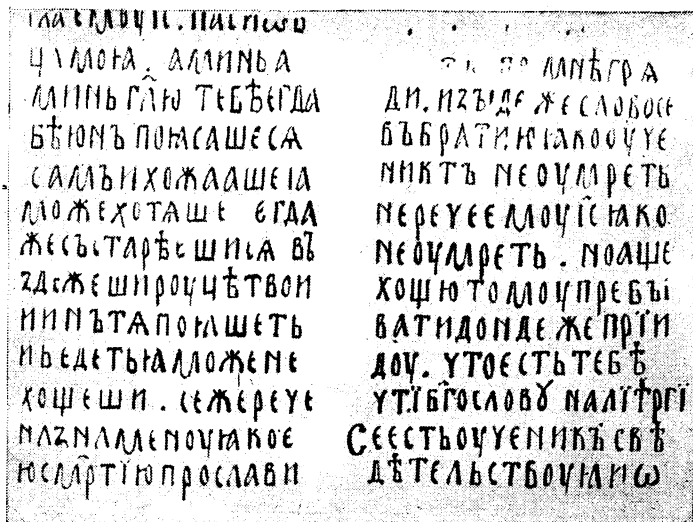 гла емоуи҃с. паси ѡв
ца моꙗ. аминь а
минь гл҃ю тебѣ егда
бѣ юнъ поꙗсаше сѧ
самъ и хожаашеꙗ
може хотѧше егда
же състарѣеши сѧ въ
здежеши роуцѣ твои
и инъ тѧ поꙗшеть
и ведеть ꙗможе не
хощеши. се же рече
назнаменоуꙗ коѥ
ю см҃ртїю прослави
ди. изꙑде же слово се
въ братию ꙗко оуче
никтъ не оумреть
не рече ємоу і҃с ꙗко
не оумреть. но аще
хощю томоу пребꙑ
вати дондеже прїи
доу. что есть тебѣ
чт҃ї б҃гословꙋ на лїт҃ргї
Се есть оученикъ свѣ
дѣтельствоуꙗи ѡ